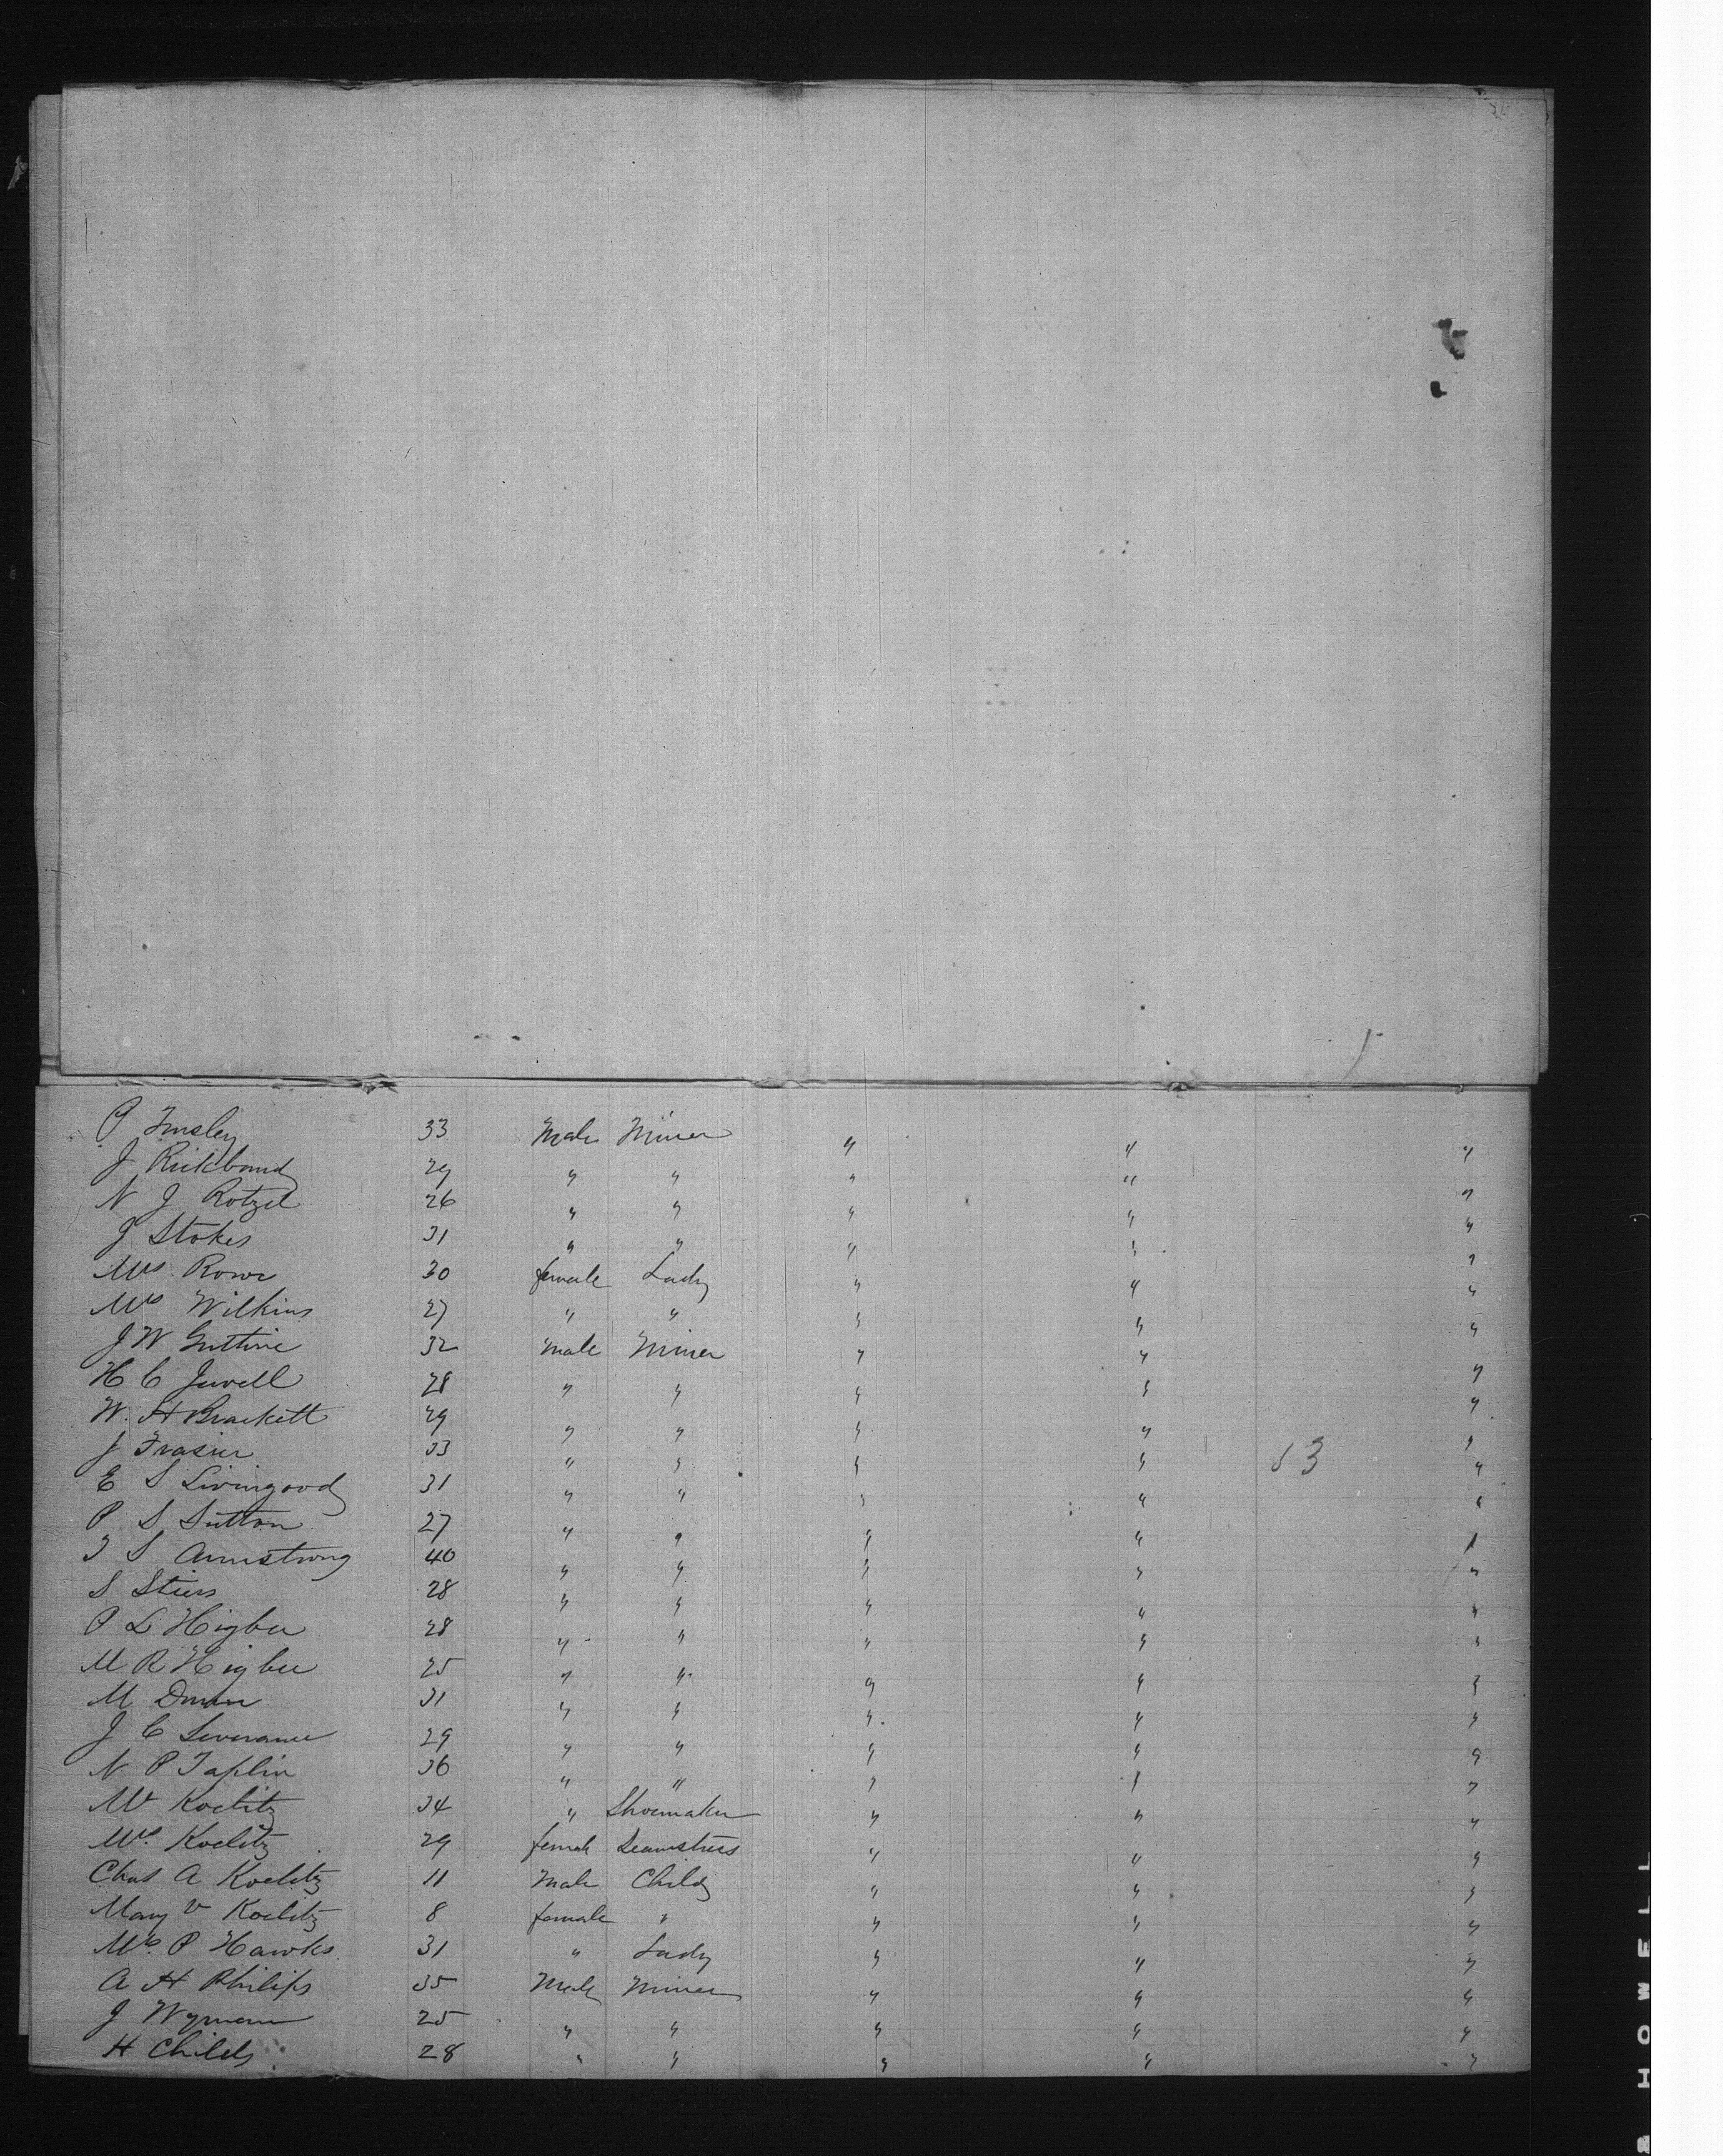 P Tinsley 33 Male Miner " " "
J Rickband 29 " " " " "
N J Rotzel 26 " " " " "
J Stokes 31 " " " " "
Mrs. Rowe 30 female Lady " " "
Mrs Wilkins 27 " " " " "
J W Guttrie 32 Male Miner " " "
H C Jewell 28 " " " " "
W. H Brackett 29 " " " " "
J Frasier 33 " " " " "
E S Livingood 31 " " " " "
P S Sutton 27 " " " " "
T S Armstrong 40 " " " " "
S Stiers 28 " " " " "
P L Higbee 28 " " " " "
M R Higbee 25 " " " " "
M 31 " " " " "
J C Severance 29 " " " " "
N P Taplin 36 " " " " "
Mr Koelitz 34 " Shoemaker " " "
Mrs. Koelitz 29 female Seamstress " " "
Chas A Koelitz 11 Male Child " " "
Mary V Koelitz 8 female " " " "
Mrs. P Hawks 31 " Lady " " "
A H Philips 35 Male Miner " " "
J Wyman 25 " " " " "
H Childs 28 " " " " "
HOWELL